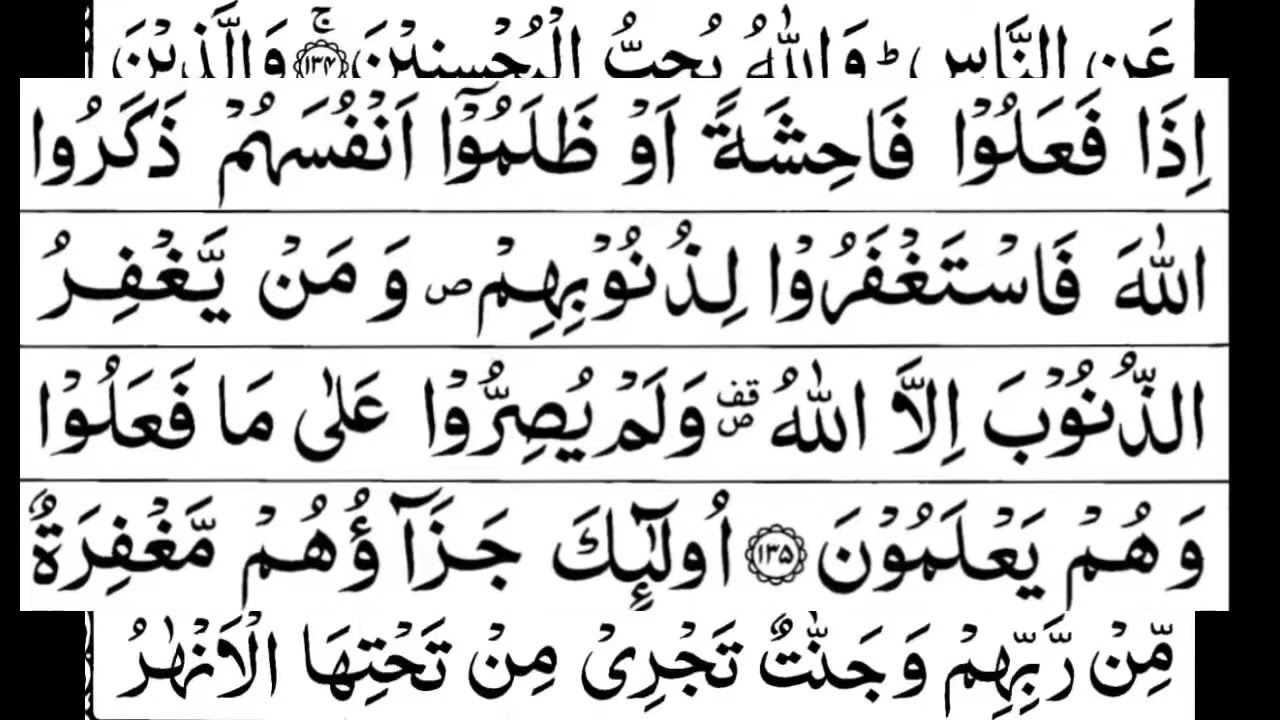 عَنِ النَّاسِ ؕ وَاللّٰهُ يُحِبُّ الْمُحْسِنِيْنَ ۚ ﴿۱۳۴﴾ وَالَّذِيْنَ
اِذَا فَعَلُوْا فَاحِشَةً اَوْ ظَلَمُوْۤا اَنْفُسَهُمْ ذَكَرُوا
اللّٰهَ فَاسْتَغْفَرُوْا لِذُنُوْبِهِمْ ص وَ مَنْ يَّغْفِرُ
الذُّنُوْبَ اِلَّا اللّٰهُ قف ص وَلَمْ يُصِرُّوْا عَلٰى مَا فَعَلُوْا
وَهُمْ يَعْلَمُوْنَ ﴿۱۳۵﴾ اُولٰٓئِكَ جَزَآؤُهُمْ مَّغْفِرَةٌ
مِّنْ رَّبِّهِمْ وَجَنّٰتٌ تَجْرِىْ مِنْ تَحْتِهَا الْاَنْهٰرُ